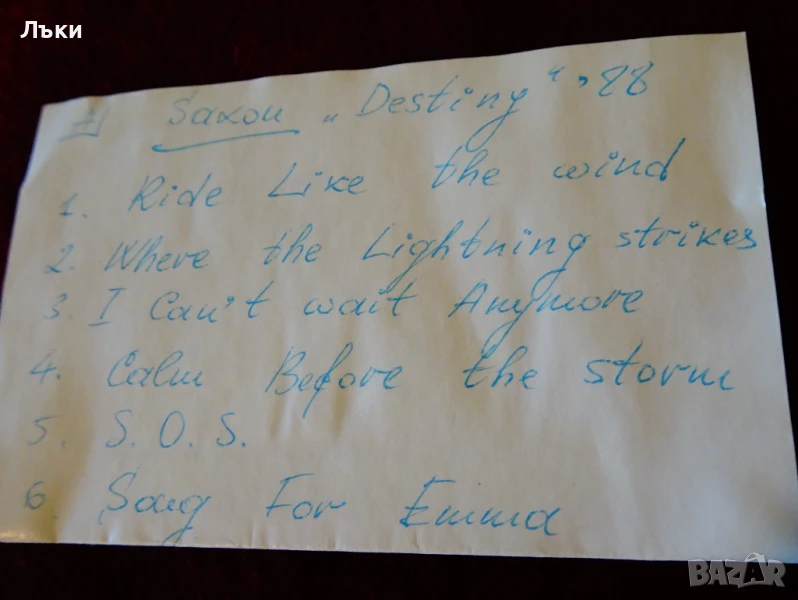 Лъки
A Saxon „Destiny“, 88
1. Ride Like the wind
2. Where the Lightning strikes
3. I Can't wait Anymore
4. Calm Before the storm
5. S.O.S.
6 Song For Emma
BAZAR